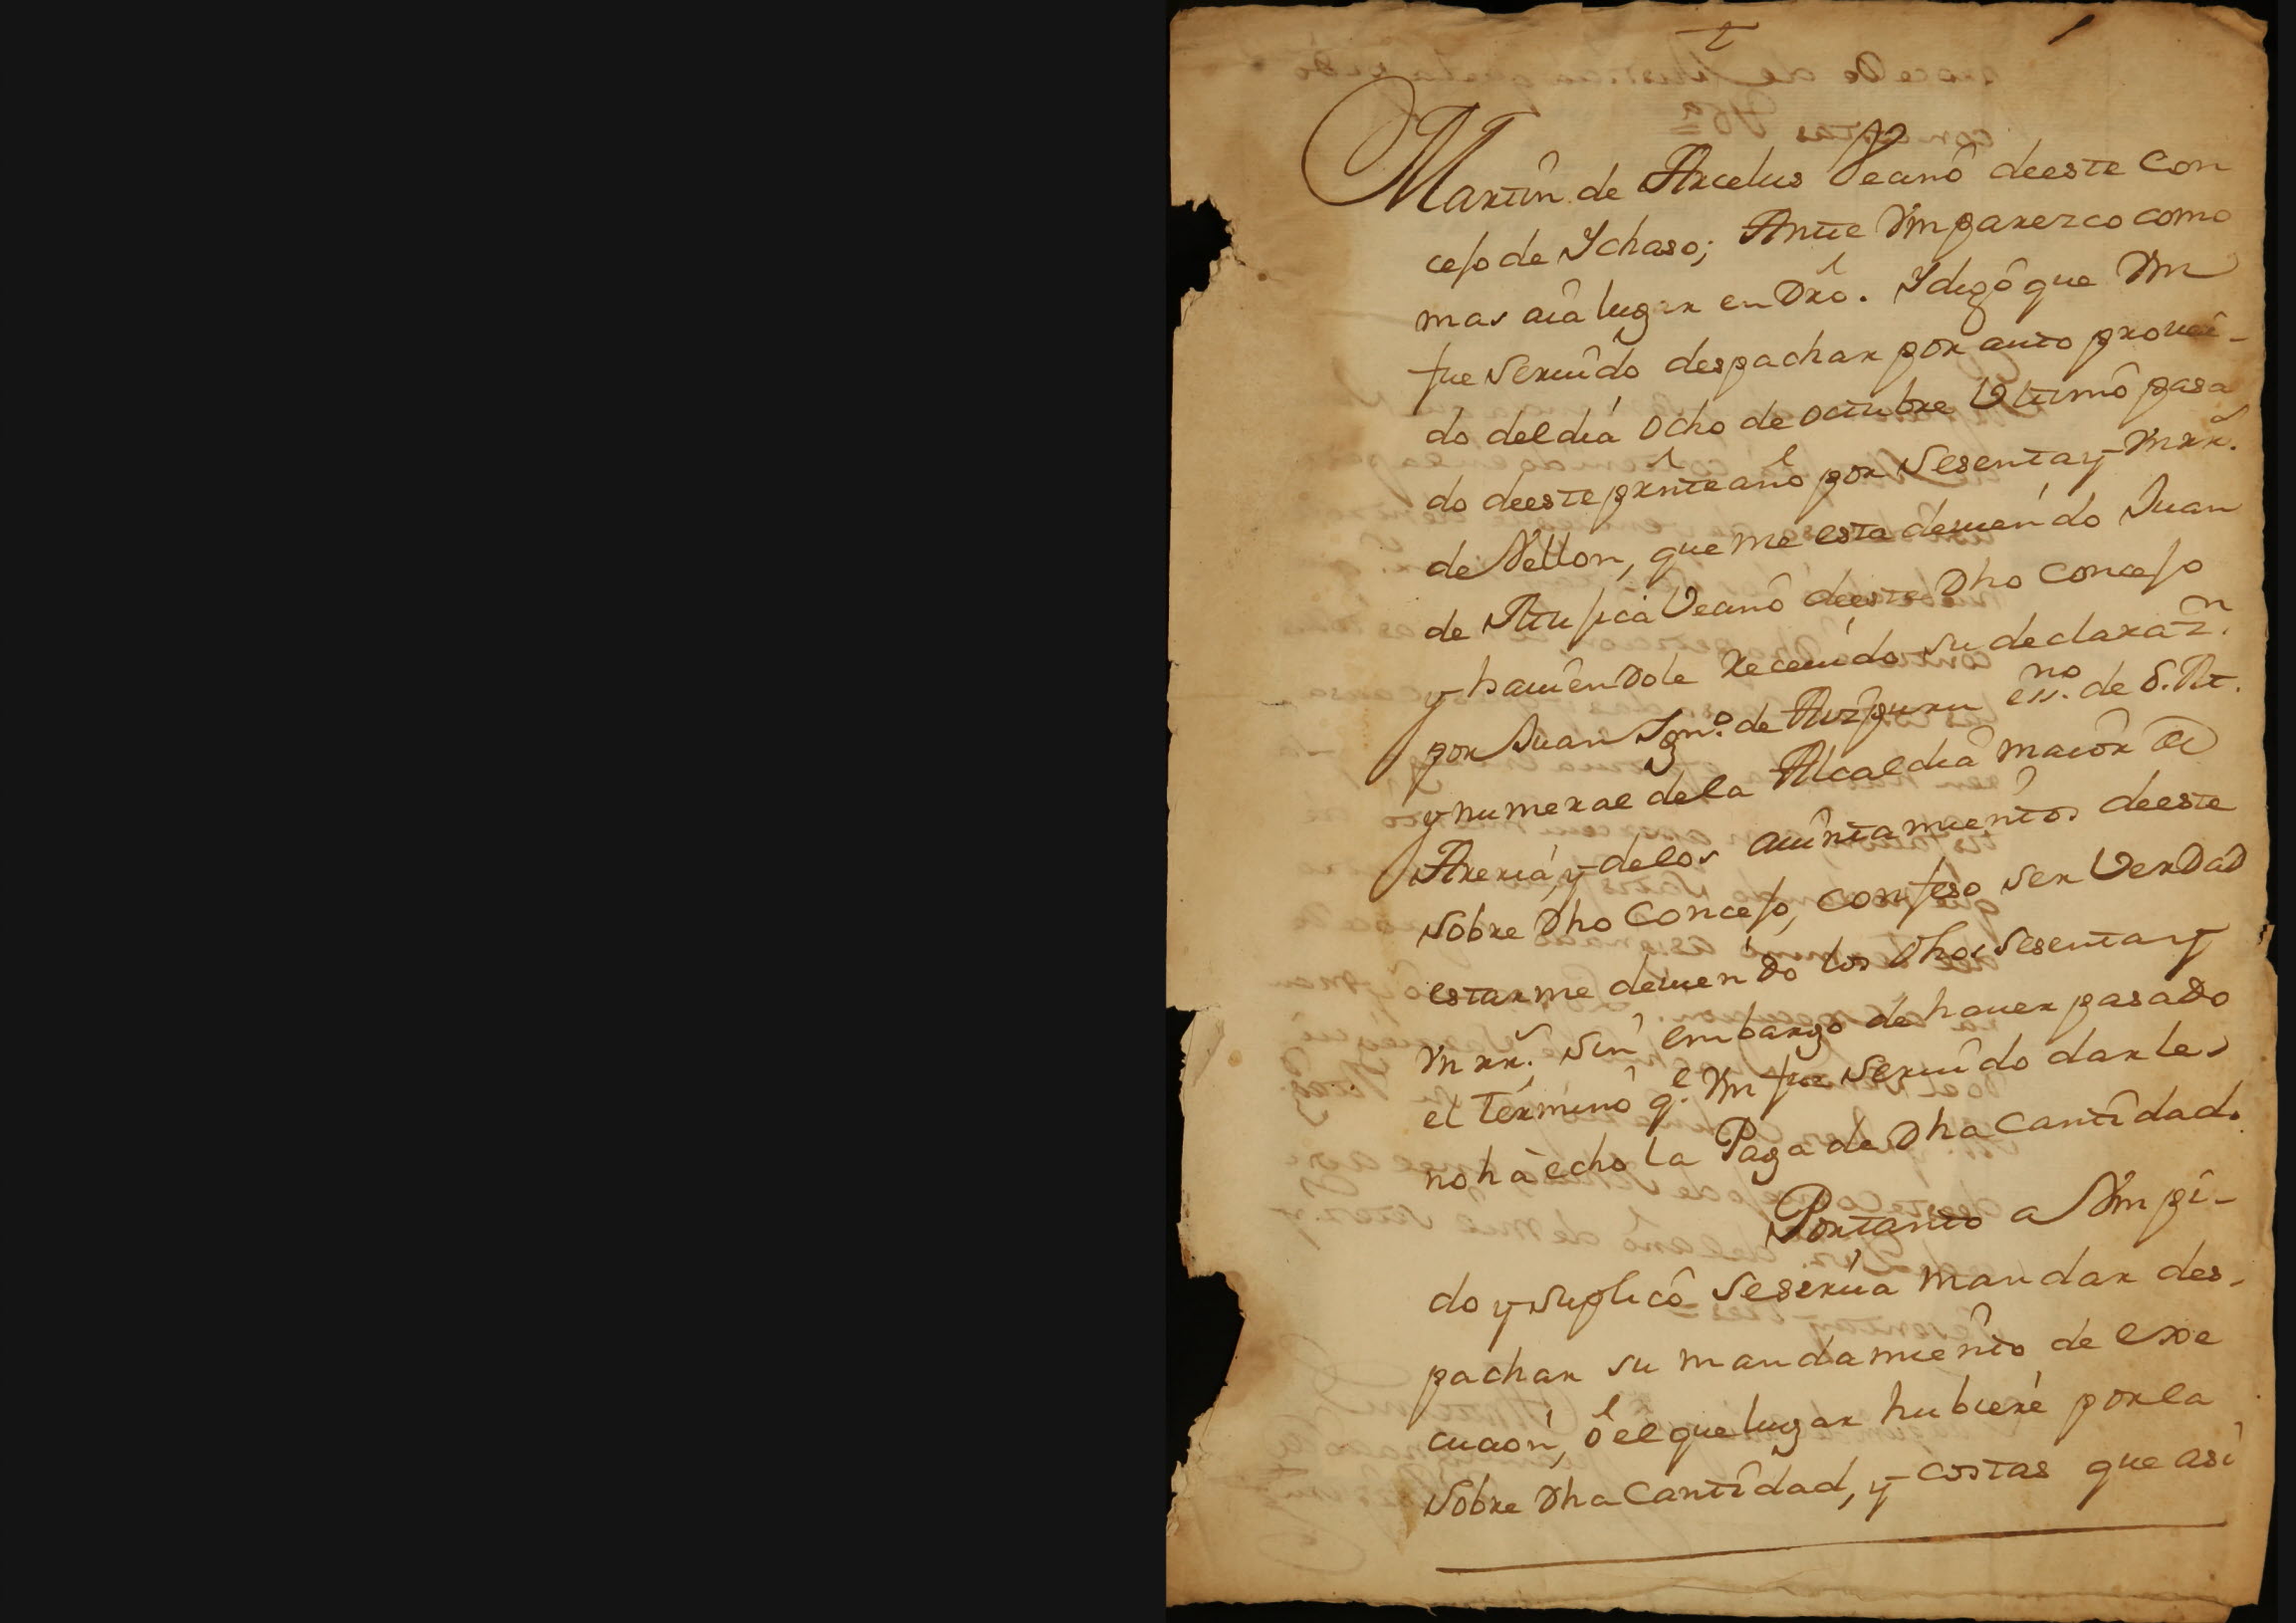 Martin de Arcelus Vecino deeste Con
cejo de Ychaso; Ante Vm parezco como
mas aia lugar en Dro. Y digo que Vm
fue servido despachar por auto provei-
do del dia ocho de octubre Vltimo pasa
do deeste prnte año por Sesenta y rrs.
de Vellon, que me esta deuiendo Juan
de Vecino deeste Dho Concejo
y haviendole Receuido su declaraz.n
por Juan Ygn.o de Aizpuru ess.no de S. M.
y numeral dela Alcaldia maior de
Areria, y delos aiuntamientos deeste
sobre Dho Concejo, confeso ser VerDaD
estarme deuienDo los Dhos Sesenta y
rrs. sin embargo de hauer pasaDo
el Termino q.e Vm fue seruido darle
no hà echo la Paga de Dha Cantidad.
Portanto a Vm pi-
do y suplico se sirua mandar des-
pachar su mandamiento de exe
cucion, ò el que lugar hubiere por la
sobre Dha Cantidad, y costas que asi